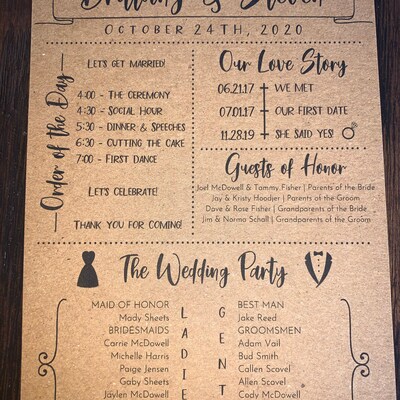 Brittany & Steven
OCTOBER 24TH, 2020
Order of the Day
LET'S GET MARRIED!
4:00 - THE CEREMONY
4:30 - SOCIAL HOUR
5:30 - DINNER & SPEECHES
6:30 - CUTTING THE CAKE
7:00 - FIRST DANCE
LET'S CELEBRATE!
THANK YOU FOR COMING!
Our Love Story
06.21.17 WE MET
07.01.17 OUR FIRST DATE
11.28.19 SHE SAID YES!
Guests of Honor
Joel McDowell & Tammy Fisher | Parents of the Bride
Jay & Kristy Hoodjer | Parents of the Groom
Dave & Rose Fisher | Grandparents of the Bride
Jim & Norma Scholl | Grandparents of the Groom
The Wedding Party
MAID OF HONOR
Mady Sheets
BRIDESMAIDS
Carrie McDowell
Michelle Harris
Paige Jensen
Gaby Sheets
Jaylen McDowell
L
A
D
I
E
G
E
N
T
BEST MAN
Jake Reed
GROOMSMEN
Adam Vail
Bud Smith
Callen Scovel
Allen Scovel
Cody McDowell